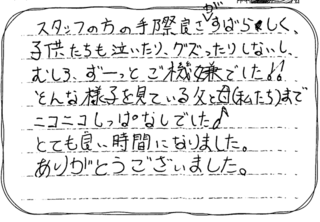 スタッフの方の手際良さがすばらしく、
子供たちも泣いたり、グズったりしないし、
むしろ、ずーっとご機嫌でした!!
そんな様子を見ている父と母(私たち)まで
ニコニコしっぱなしでした♪
とても良い時間になりました。
ありがとうございました。